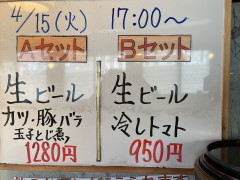 4/15(火) 17:00〜
Aセット
生ビール
カツ・豚バラ
玉子とじ煮
1280円
Bセット
生ビール
冷しトマト
950円